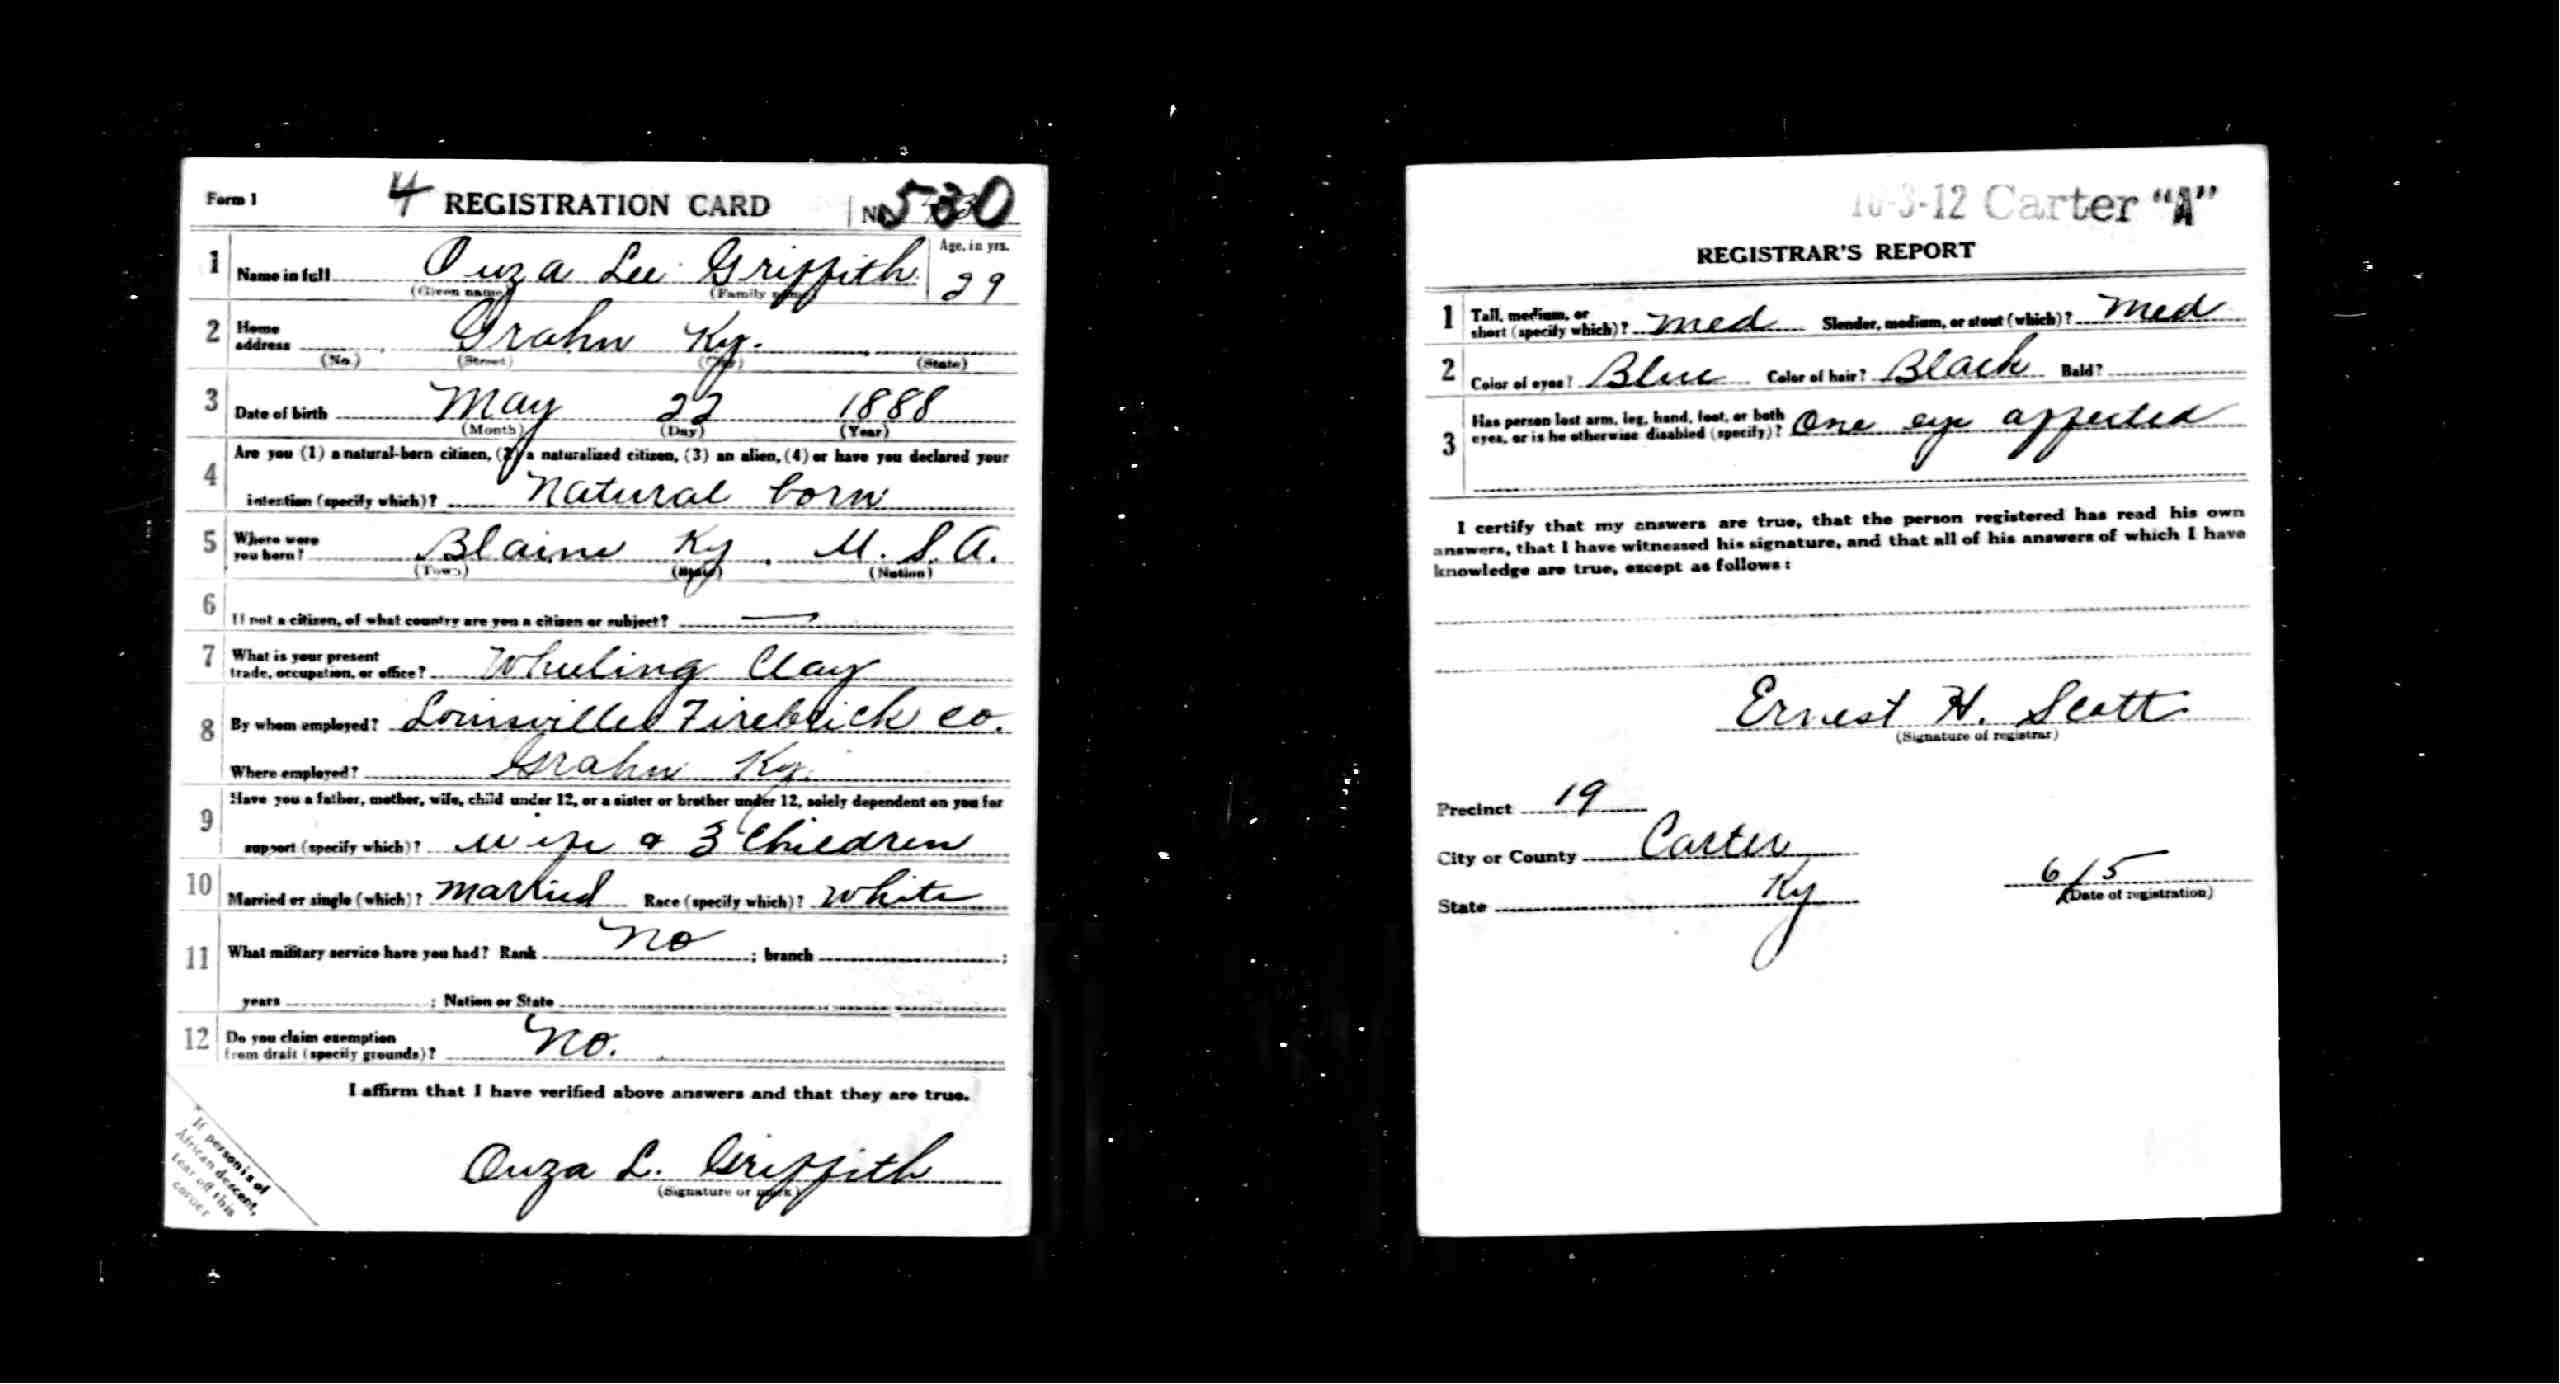 Form 1 4 REGISTRATION CARD No. 530
1 Name in full Ouza Lee Griffith Age, in yrs. 29
(Given name) (Family name)
2 Home address Grahn Ky.
(No.) (Street) (City) (State)
3 Date of birth May 22 1888
(Month) (Day) (Year)
4 Are you (1) a natural-born citizen, (2) a naturalized citizen, (3) an alien, (4) or have you declared your
intention (specify which)? Natural born
5 Where were you born? Blaine Ky, U. S. A.
(Town) (State) (Nation)
6 If not a citizen, of what country are you a citizen or subject? —
7 What is your present trade, occupation, or office? Wheeling Clay
8 By whom employed? Louisville Firebrick co.
Where employed? Grahn Ky.
9 Have you a father, mother, wife, child under 12, or a sister or brother under 12, solely dependent on you for
support (specify which)? Wife & 3 Children
10 Married or single (which)? married Race (specify which)? White
11 What military service have you had? Rank No ; branch ;
years ; Nation or State
12 Do you claim exemption from draft (specify grounds)? No.
I affirm that I have verified above answers and that they are true.
Ouza L. Griffith
(Signature or mark)
If person is of
African descent,
tear off this
corner
16-3-12 Carter "A"
REGISTRAR'S REPORT
1 Tall, medium, or short (specify which)? Med Slender, medium, or stout (which)? Med
2 Color of eyes? Blue Color of hair? Black Bald?
3 Has person lost arm, leg, hand, foot, or both
eyes, or is he otherwise disabled (specify)? One eye affected
I certify that my answers are true, that the person registered has read his own
answers, that I have witnessed his signature, and that all of his answers of which I have
knowledge are true, except as follows:
Ernest H. Scott
(Signature of registrar)
Precinct 19
City or County Carter
State Ky
6/5
(Date of registration)